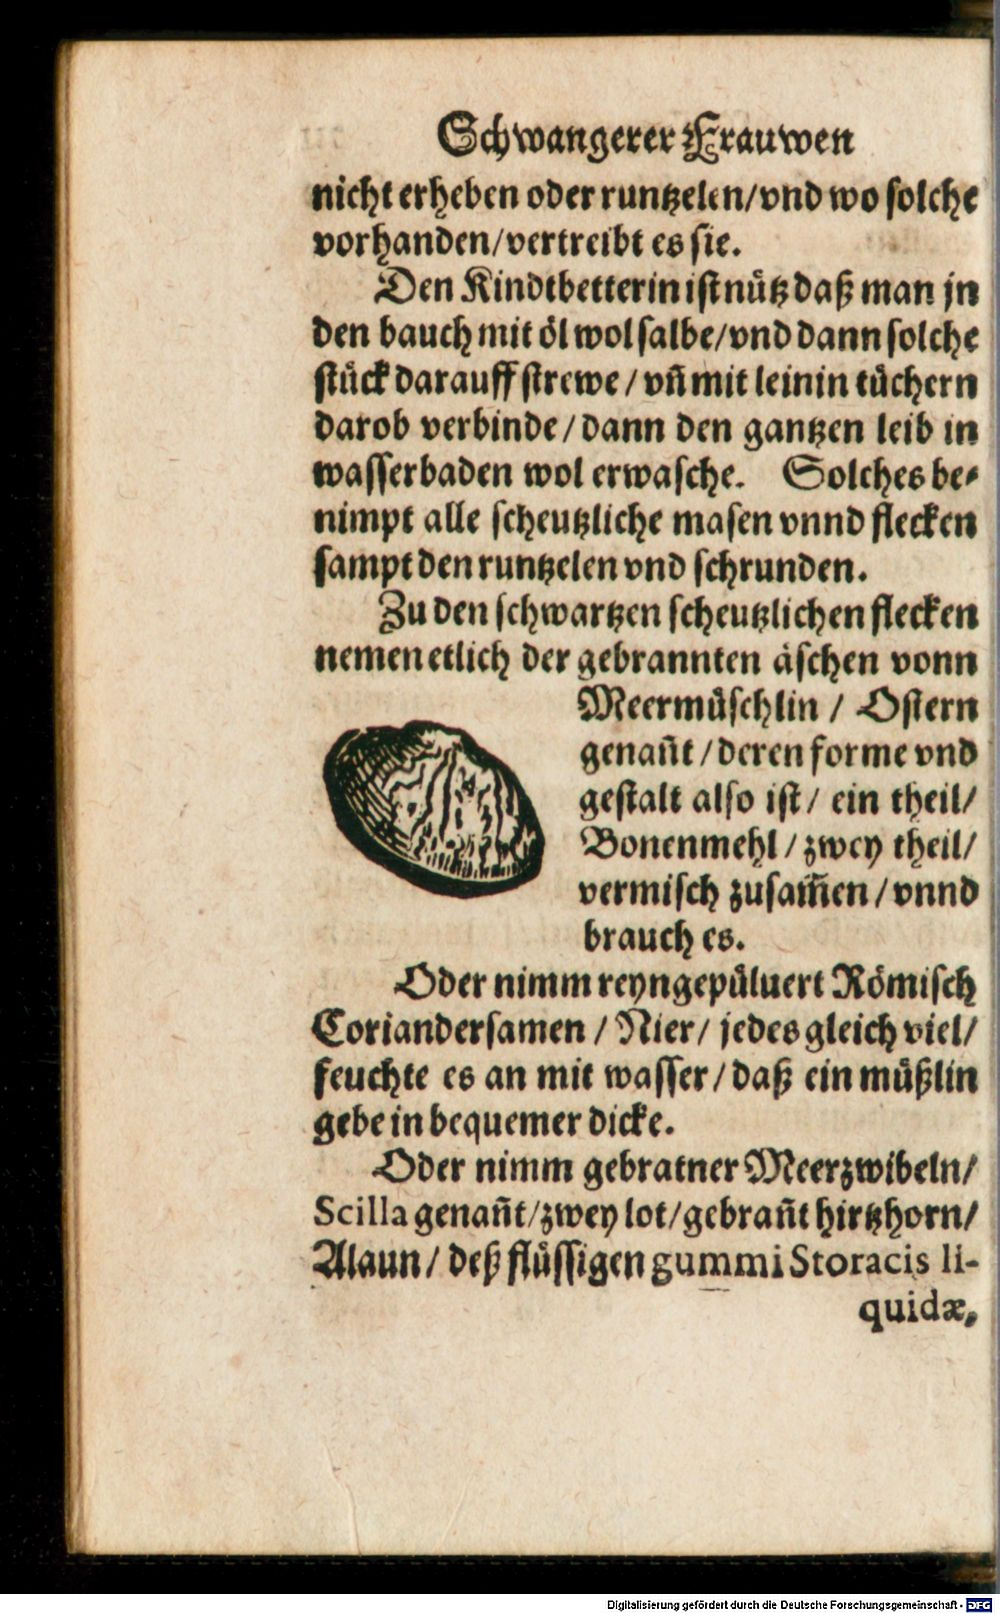 Schwangerer Frauwen
nicht erheben oder runtzelen/vnd wo solche
vorhanden/vertreibt es sie.
Den Kindtbetterin ist nütz daß man jn
den bauch mit öl wol salbe/vnd dann solche
stück darauff strewe/vñ mit leinin tüchern
darob verbinde/dann den gantzen leib in
wasserbaden wol erwasche. Solches be-
nimpt alle scheutzliche masen vnnd flecken
sampt den runtzelen vnd schrunden.
Zu den schwartzen scheutzlichen flecken
nemen etlich der gebrannten äschen vonn
Meermüschlin/ Ostern
genañt/deren forme vnd
gestalt also ist/ ein theil/
Bonenmehl/zwey theil/
vermisch zusam̃en/vnnd
brauch es.
Oder nimm reyngepüluert Römisch
Coriandersamen/Nier/ jedes gleich viel/
feuchte es an mit wasser/daß ein müßlin
gebe in bequemer dicke.
Oder nimm gebratner Meerzwibeln/
Scilla genañt/zwey lot/gebrañt hirtzhorn/
Alaun/ deß flüssigen gummi Storacis li-
quidæ,
Digitalisierung gefördert durch die Deutsche Forschungsgemeinschaft - DFG